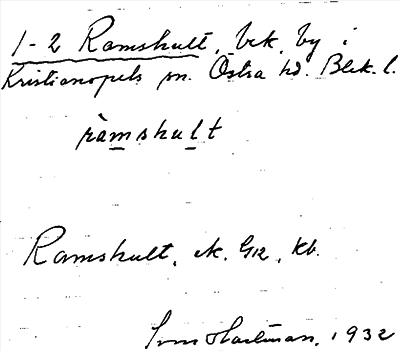 1-2 Ramshult, bek. by i
Kristianopels sn. Östra hd. Blek. l.
ràmshult
Ramshult, ek. G12, Kb.
Hartman, 1932